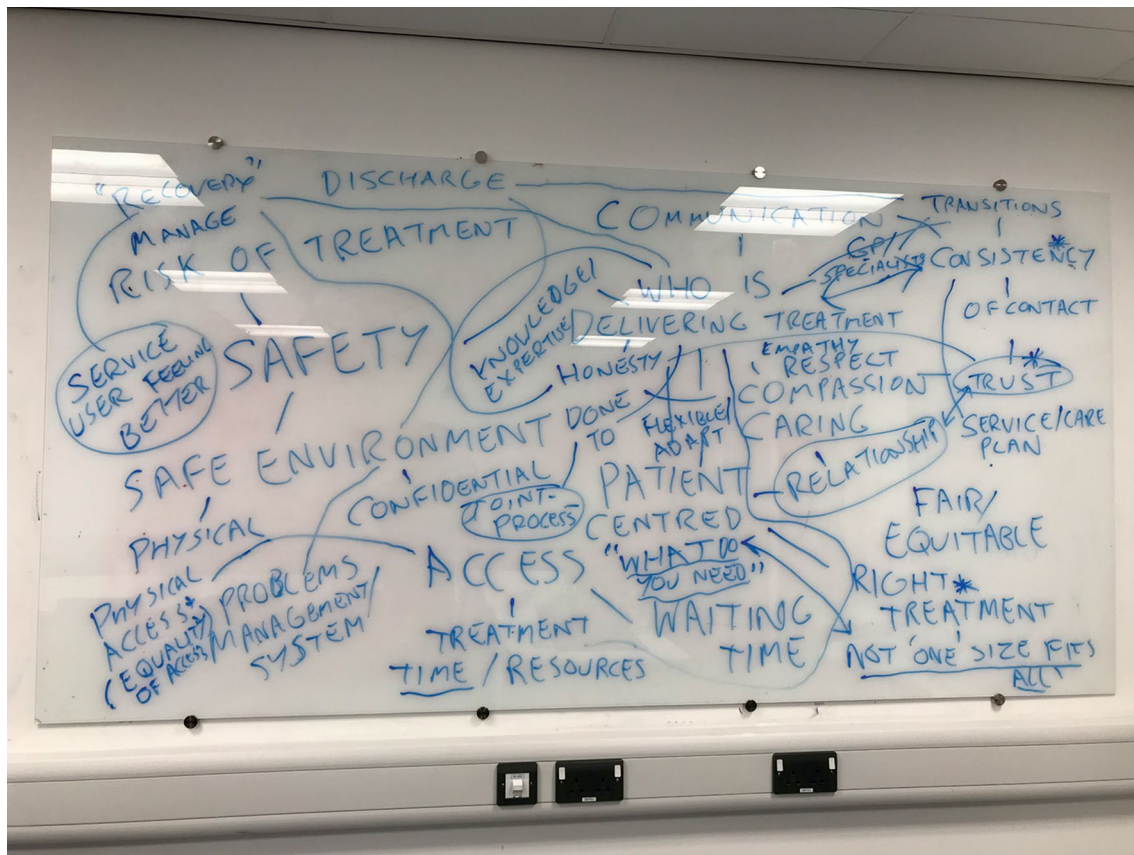 "RECOVERY"
MANAGE
RISK OF TREATMENT
DISCHARGE
COMMUNICATION
TRANSITIONS
GP/
SPECIALISTS
CONSISTENCY*
OF CONTACT
TRUST*
SERVICE/CARE
PLAN
WHO IS
DELIVERING TREATMENT
KNOWLEDGE/
EXPERTISE
HONESTY
EMPATHY
RESPECT
COMPASSION
CARING
SERVICE
USER FEELING
BETTER
SAFETY
SAFE ENVIRONMENT
DONE
TO
FLEXIBLE/
ADAPT
RELATIONSHIP
CONFIDENTIAL
JOINT-
PROCESS
PATIENT
CENTRED
"WHAT DO
YOU NEED"
FAIR/
EQUITABLE
PHYSICAL
PHYSICAL
ACCESS+
(EQUALITY)
OF ACCESS
PROBLEMS
/MANAGEMENT/
SYSTEM
ACCESS
TREATMENT
TIME / RESOURCES
WAITING
TIME
RIGHT*
TREATMENT
NOT 'ONE' SIZE FITS
ALL'